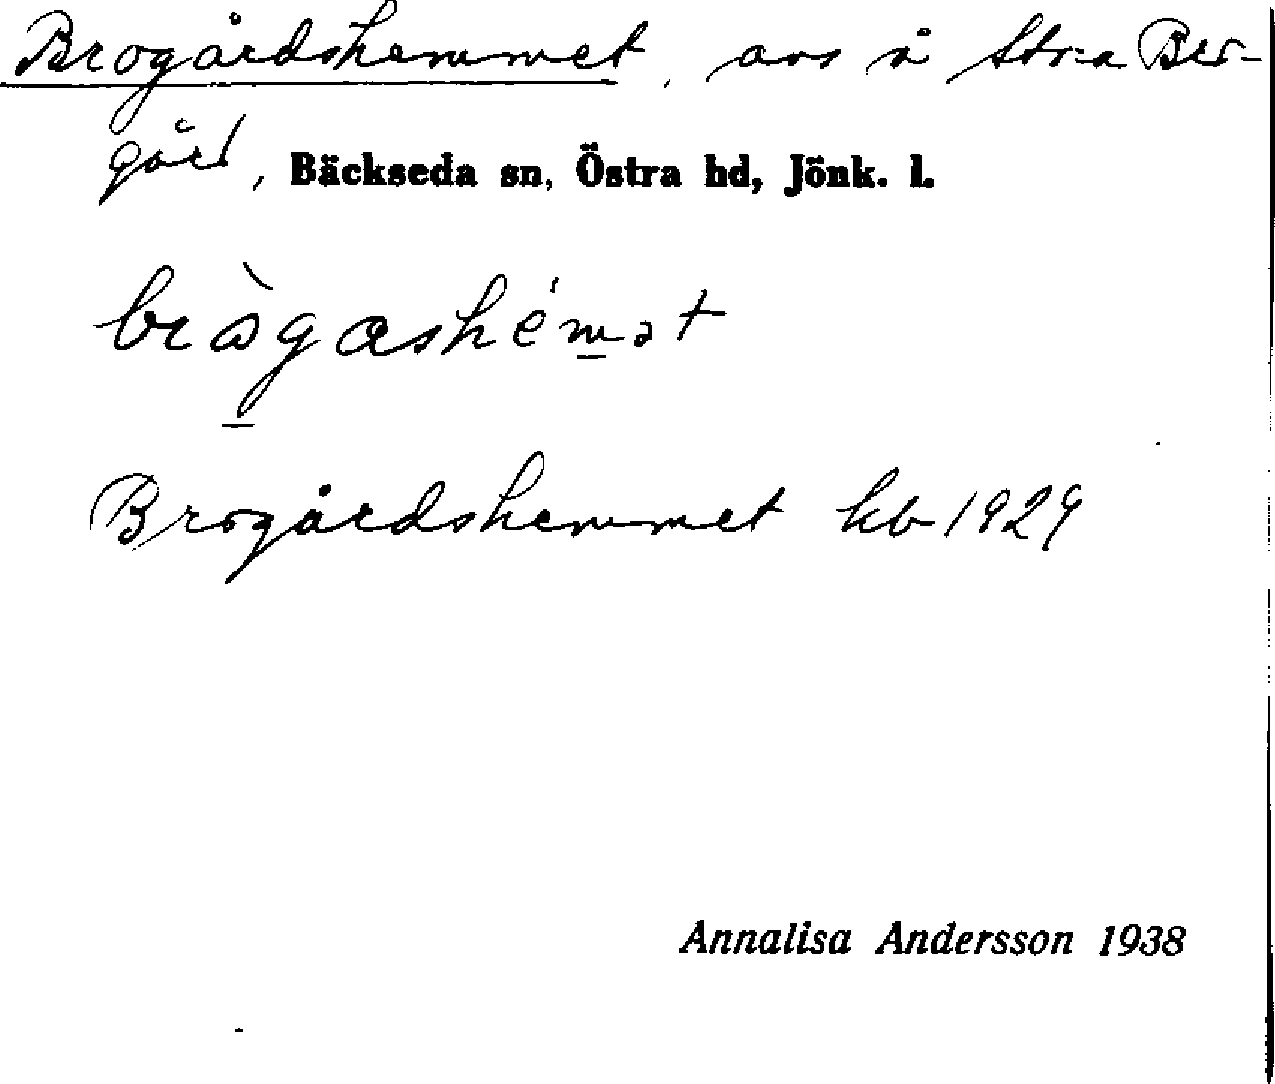 Brogårdshemmet, avs å Stora Bro-
gård, Bäckseda sn, Östra hd, Jönk. l.
Brogårdshemmet kb 1929
Annalisa Andersson 1938